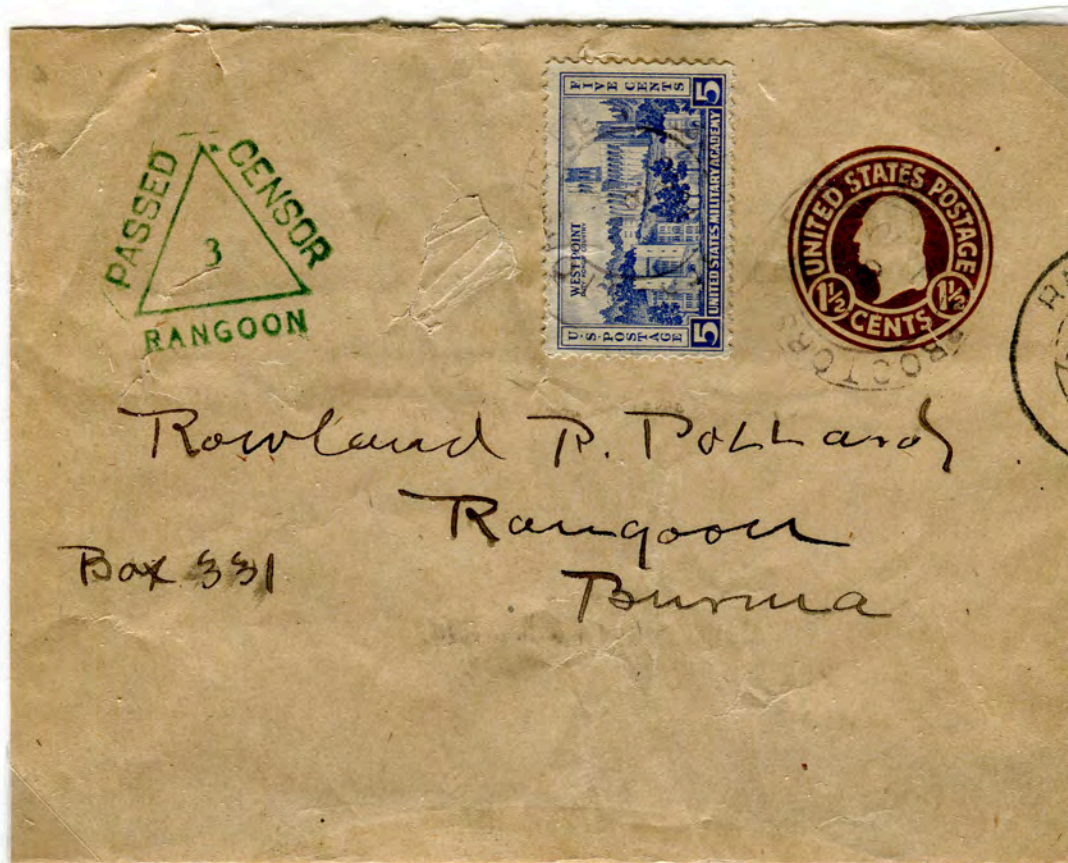 PASSED CENSOR
3
RANGOON
FIVE CENTS
5
WEST POINT
UNITED STATES MILITARY ACADEMY
U·S·POSTAGE
5
UNITED STATES POSTAGE
1½ 1½
CENTS
PROCTOR
Rowland R. Pollard
Rangoon
Box 331
Burma